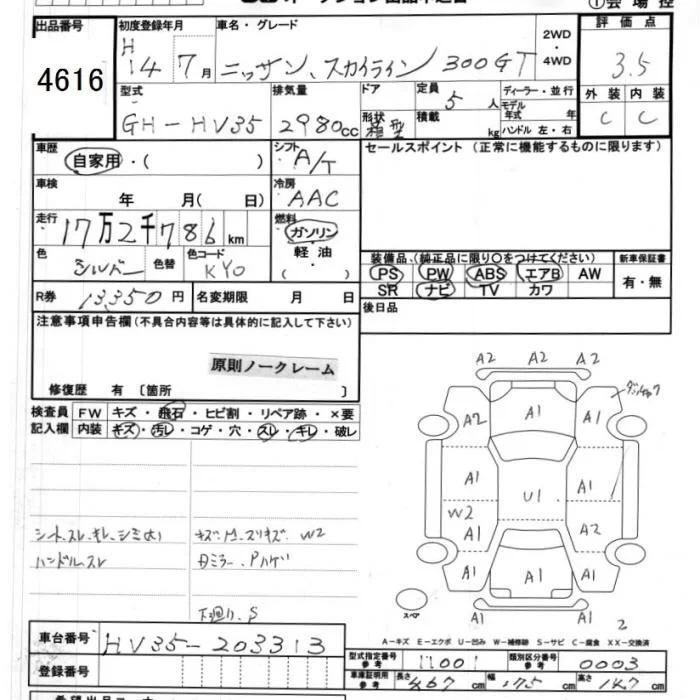 出品番号 4616
初度登録年月 H 14 7月
車名・グレード ニッサン、スカイライン 300GT
2WD・4WD
評価点 3.5
外装 C 内装 C
型式 GH-HV35
排気量 2980cc
ドア 形状 箱型
定員 5人
積載 kg
ディーラー・並行
モデル年式 年
ハンドル 左・右
車歴 自家用・( )
シフト A/T
セールスポイント (正常に機能するものに限ります)
車検 年 月(日)
冷房 AAC
走行 17万2千786km
燃料 ガソリン
軽油
( ・ )
色 シルバー 色替 色コード KY0
装備品、(純正品に限り○をつけてください) 新車保証書
PS PW ABS エアB AW 有・無
SR ナビ TV カワ
R券 13,350円 名変期限 月 日
後日品
注意事項申告欄(不具合内容等は具体的に記入して下さい)
原則ノークレーム
修復歴 有 〔箇所 〕
検査員記入欄
FW キズ・飛石・ヒビ割・リペア跡・×要
内装 キズ・汚レ・コゲ・穴・スレ・キレ・破レ
シート、スレ、キレ、シミ大)
ハンドル、スレ
W2
下廻リ、S
A2 A2 A2
A2 A1 A1
A1 A1
W2 U1
A1 A2
A1 A1 A1
A1 2
スペア
A-キズ E-エクボ U-凹み W-補修跡 S-サビ C-腐食 XX-交換済
車台番号 HV35-203313
登録番号
型式指定番号 参考 11001
類別区分番号 参考 0003
車庫証明用 参考 長さ 467cm 幅 175cm 高さ 147cm